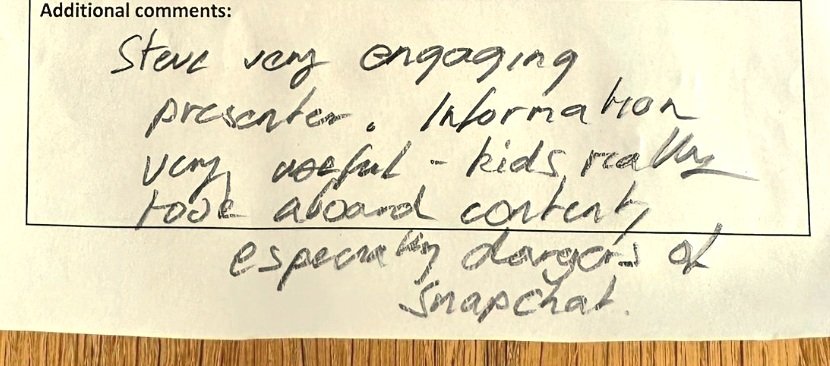 Additional comments:
Steve very engaging
presenter. Information
very useful - kids really
took aboard content,
especially dangers of
Snapchat.